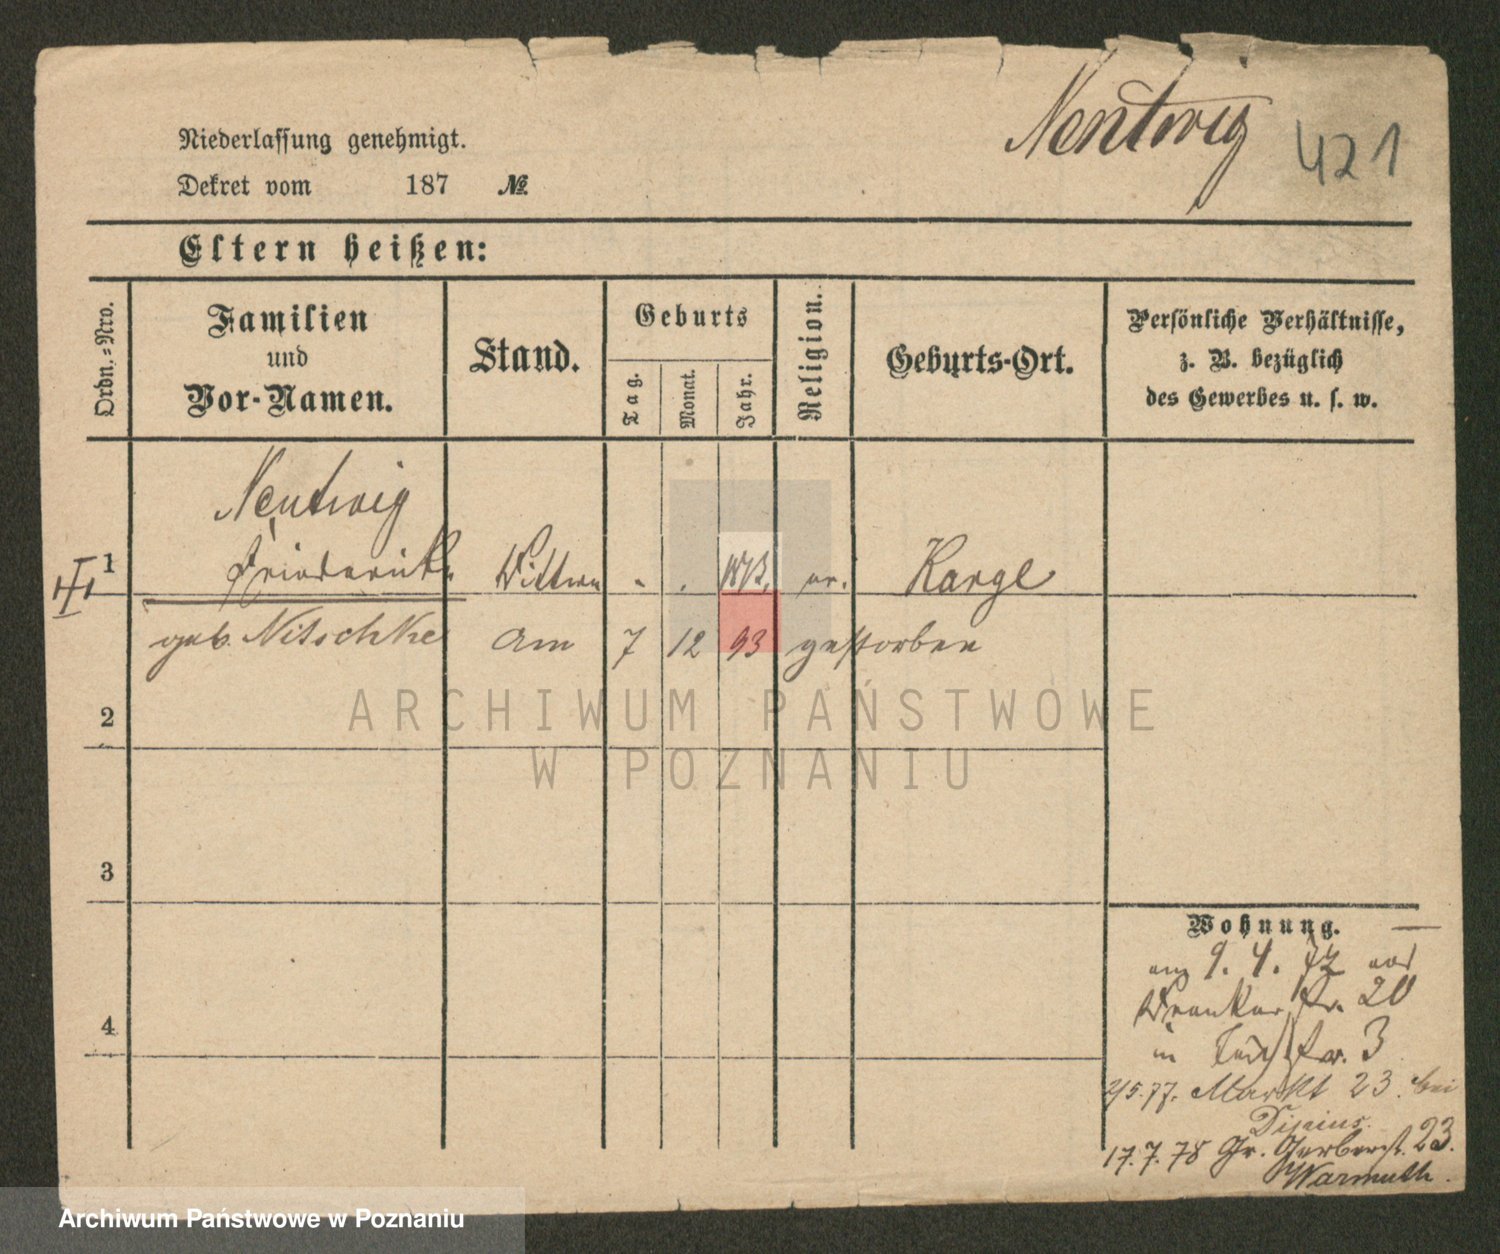 Nentwig 421
Niederlassung genehmigt.
Dekret vom 187 №
Eltern heißen:
Ordn.=Nro.
Familien
und
Vor-Namen.
Stand.
Geburts
Tag.
Monat.
Jahr.
Religion.
Geburts-Ort.
Persönliche Verhältnisse,
z. B. bezüglich
des Gewerbes u. s. w.
Nentwig
1 Friederike Wittwe Karge
geb. Nitschke am 7 12 93 gestorben
ARCHIWUM PAŃSTWOWE
W POZNANIU
2
3
4
Wohnung.
9. 4. 72
20
in 3
2/5.77. Markt 23. bei
17.7.78 Gr. Gerberst. 23.
Warmuth.
Archiwum Państwowe w Poznaniu